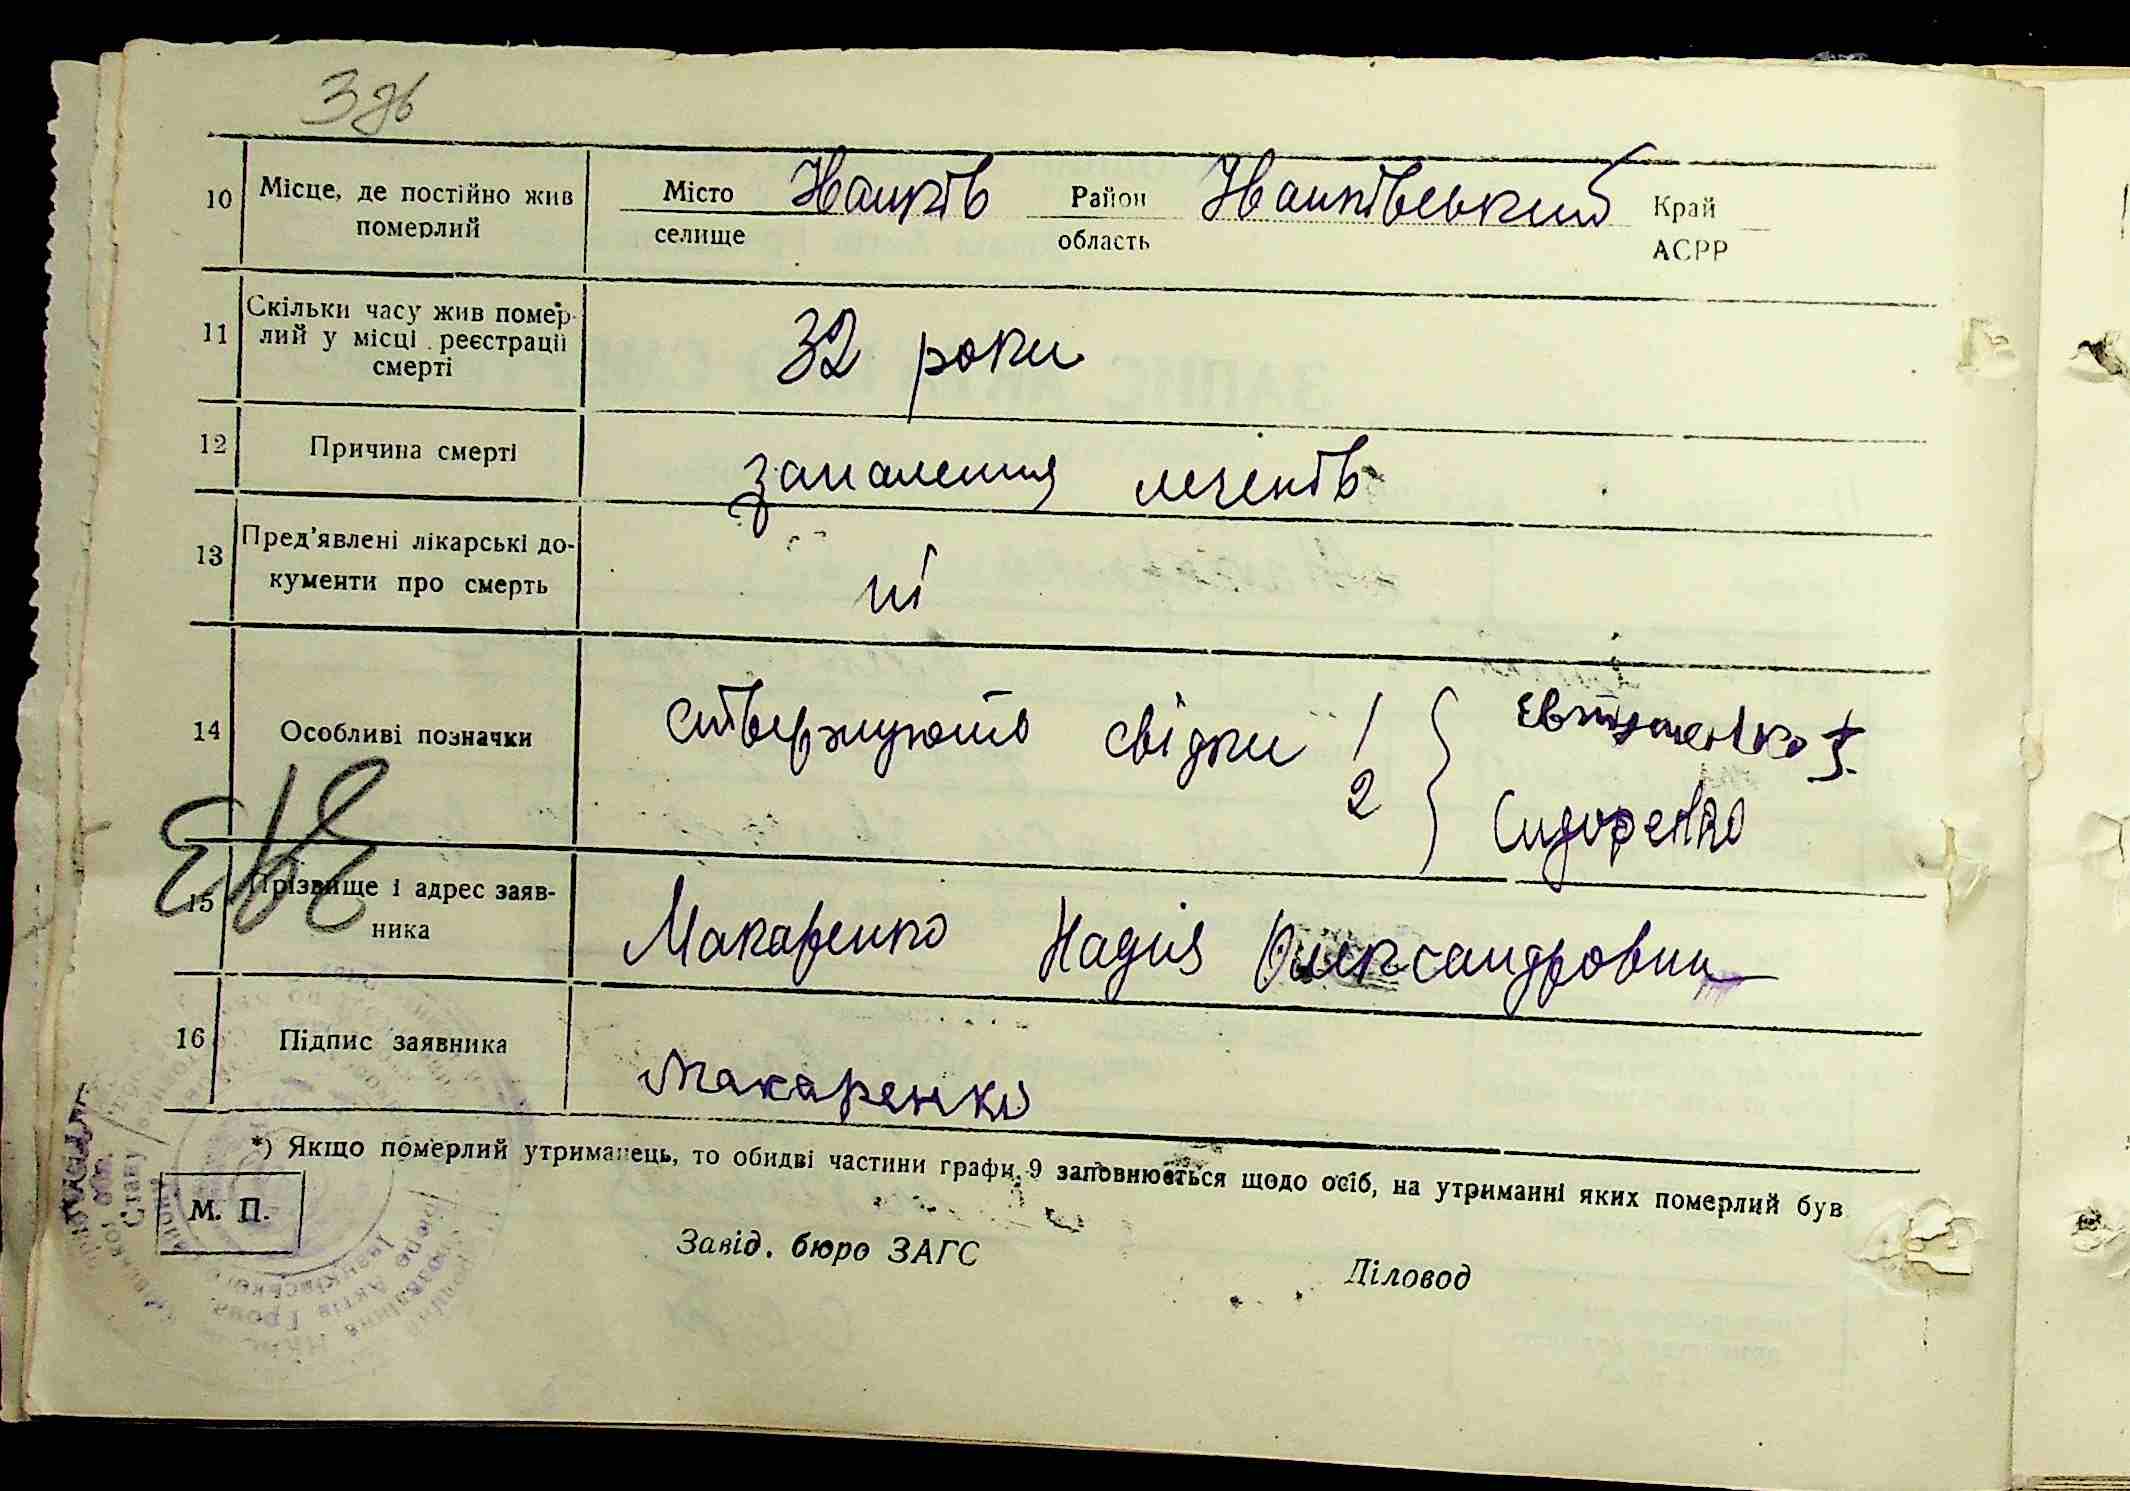 3 дв
10 Місце, де постійно жив Місто Іванків Район Іванківський Край
померлий селище область АСРР
Скільки часу жив помер-
11 лий у місці реєстрації 32 роки
смерті
12 Причина смерті запалення легенів
13 Пред'явлені лікарські до- ні
кументи про смерть
14 Особливі позначки ствержують свідки 1
2 Сидоренко
15 Прізвище і адрес заяв- Макаренко Надія Олександровна
ника
16 Підпис заявника Макаренко
*) Якщо померлий утриманець, то обидві частини графи 9 заповнюється щодо осіб, на утриманні яких померлий був
М. П.
Завід. бюро ЗАГС Діловод